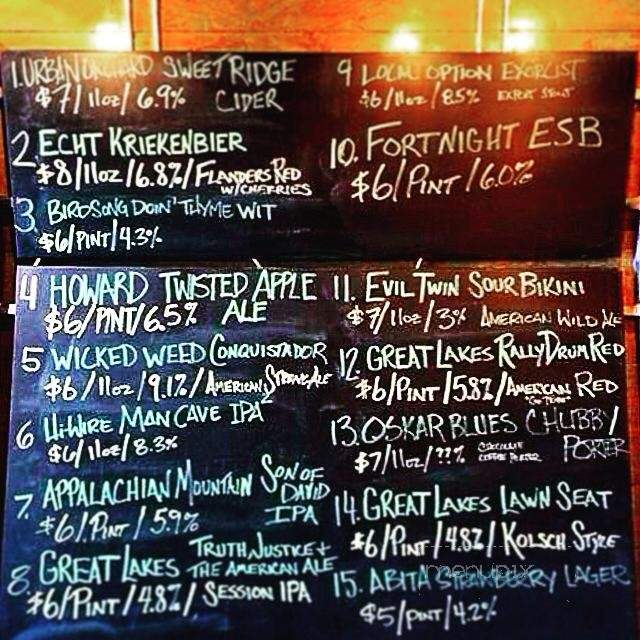 1. URBAN ORCHARD SWEET RIDGE
$7/11oz/6.9% CIDER
2 ECHT KRIEKENBIER
$8/11oz/6.8%/FLANDERS RED
W/CHERRIES
3 BIRDSONG DOIN' THYME WIT
$6/PINT/4.3%
4 HOWARD TWISTED APPLE
$6/PINT/6.5% ALE
5 WICKED WEED CONQUISTADOR
$6/11oz/9.1%/AMERICAN STRONG ALE
6 Hi-WIRE MAN CAVE IPA
$6/11oz/8.3%
7. APPALACHIAN MOUNTAIN SON OF
DAVID
IPA
$6/PINT/5.9%
8. GREAT LAKES TRUTH, JUSTICE +
THE AMERICAN ALE
$6/PINT/4.8%/SESSION IPA
9 LOCAL OPTION EXORCIST
$6/11oz/8.5% EXPORT STOUT
10. FORTNIGHT ESB
$6/PINT/6.0%
11. EVIL TWIN SOUR BIKINI
$7/11oz/3% AMERICAN WILD ALE
12. GREAT LAKES RALLY DRUM RED
$6/PINT/5.8%/AMERICAN RED
13. OSKAR BLUES CHUBBY/
PORTER
$7/11oz/??% CHOCOLATE
COFFEE PORTER
14. GREAT LAKES LAWN SEAT
$6/PINT/4.8%/KOLSCH STYLE
15. ABITA STRAWBERRY LAGER
$5/PINT/4.2%
menupix